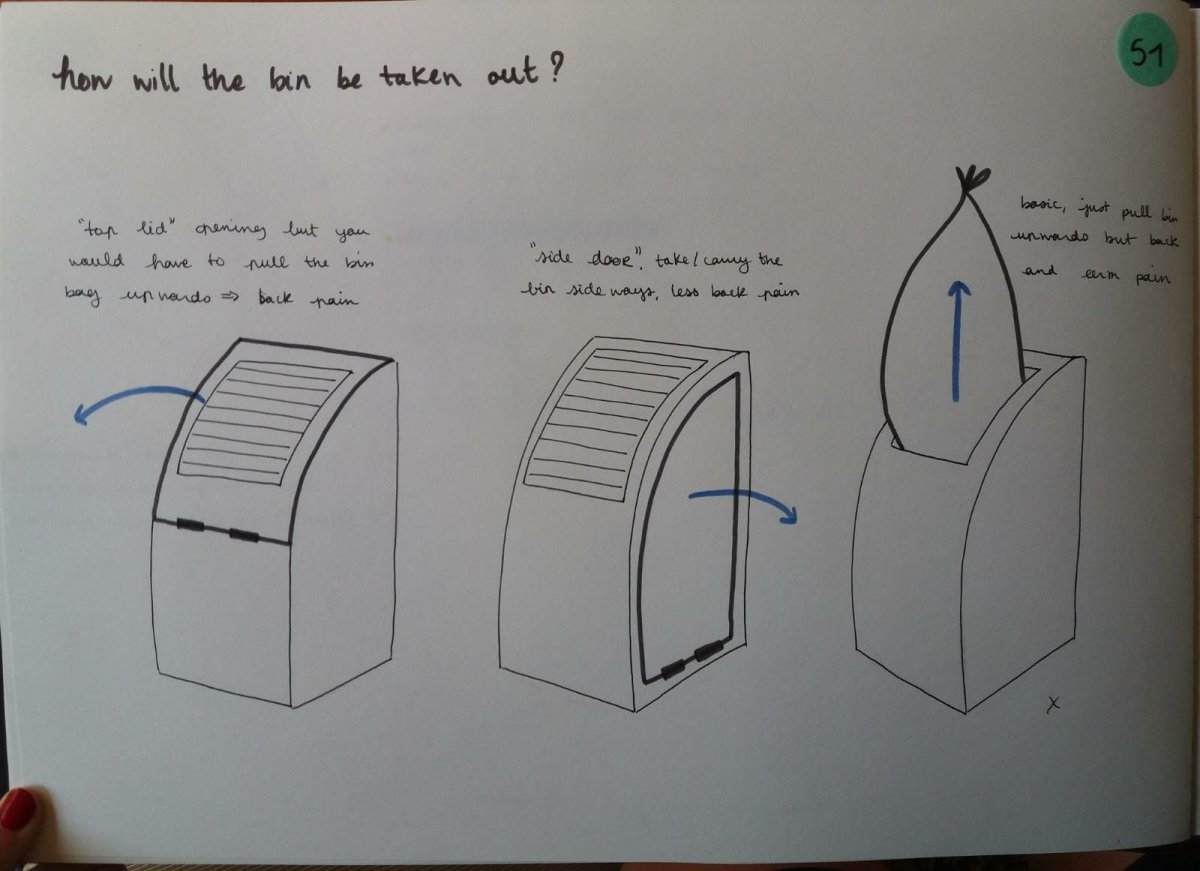 how will the bin be taken out?
51
"top lid" opening but you
would have to pull the bin
bag upwards ⇒ back pain
"side door", take/carry the
bin sideways, less back pain
basic, just pull bin
upwards but back
and arm pain
x